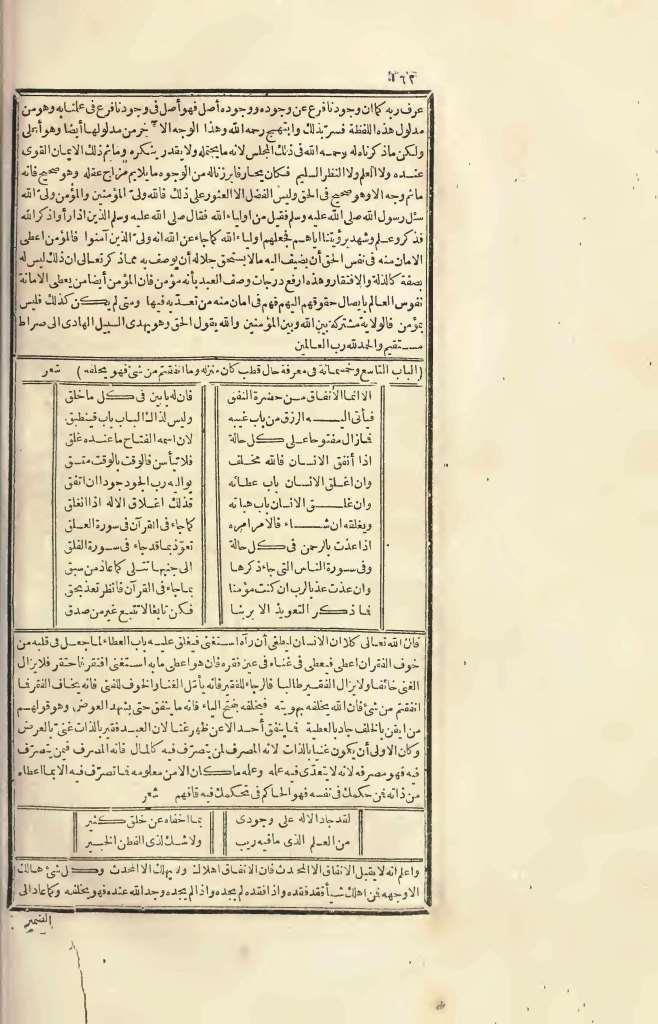 ١٦٣
عرف ربه كما ان وجودنا فرع عن وجوده ووجوده أصل فهو أصل في وجودنا فرع في علمنا به وهو من
مدلول هذه اللفظة فسر بذلك وابتهج رحمه الله وهذا الوجه الآخر من مدلولها أيضا وهو أعلى
ولكن ما ذكرناه له رحمه الله في ذلك المجلس لانه ما يحتمله ولا يقدر ينكره وما ثم ذلك الايمان القوى
عنده ولا العلم ولا النظر السليم فكان يحار فابرزنا له من الوجوه ما يلايم مزاج عقله وهو صحيح فانه
ما ثم وجه الا وهو صحيح في الحق وليس الفضل الا العثور على ذلك فالله ولىّ المؤمنين والمؤمن ولىّ الله
سئل رسول الله صلى الله عليه وسلم فقيل من اولياء الله فقال صلى الله عليه وسلم الذين اذا رأوا ذكر الله
فذكر وعلم وشهد برؤيتنا اياهم فجعلهم اولياء الله كما جاء عن الله انه ولىّ الذين آمنوا فالمؤمن اعطى
الامان منه في نفس الحق أن يضيف اليه ما لا يستحق جلاله أن يوصف به مما ذكر تعالى ان ذلك ليس له
بصفة كالذلة والافتقار وهذه ارفع درجات وصف العبد بأنه مؤمن فان المؤمن أيضا من يعطى الامانة
نفوس العالم بايصال حقوقهم اليهم فهم في امان منه من تعديه فيها ومتى لم يكن كذلك فليس
بمؤمن فالولاية مشتركة بين الله وبين المؤمنين والله يقول الحق وهو يهدى السبيل الهادى الى صراط
مستقيم والحمد لله رب العالمين
(الباب التاسع وخمسمائة في معرفة حال قطب كان منزله وما انفقتم من شئ فهو يخلفه) شعر
الا انما الانفاق من حضرة النفق فان له بابين في كل ما خلق
فيأتى اليه الرزق من باب غيبه وليس لذاك الباب باب فينطبق
فما زال مفتوحا على كل حالة لان اسمه الفتاح ما عنده غلق
اذا أنفق الانسان فالله مخلف فلا تيأسن فالوقت بالوقت متسق
وان اغلق الانسان باب عطائه يواليه رب الجود جودا ان اتفق
وان غلق الانسان باب هباته فذلك اغلاق الاله اذا انغلق
ويغلقه ان شاء فالامر امره كما جاء في القرآن في سورة العلق
اذا عذت بالرحمن في كل حالة تعوّذ بما قد جاء في سورة الفلق
وفي سورة الناس التي جاء ذكرها الى جنبها تتلى كما عاذ من سبق
وان عذت عذ بالرب ان كنت مؤمنا بما جاء في القرآن فانظر تعذ بحق
فما ذكر التعويذ الا بربنا فكن تابعا لا تتبع غير من صدق
فان الله تعالى كلا ان الانسان ليطغى أن رآه استغنى فيغلق عليه باب العطاء لما جعل في قلبه من
خوف الفقر ان اعطى فيعطى في غناه في عين فقره فان هو اعطى ما به استغنى افتقر فاحتقر فلا يزال
الغنى خائفا ولا يزال الفقير طالبا فالرجاء للفقير فانه يأمل الغنا والخوف للغنى فانه يخاف الفقر فما
انفقتم من شئ فان الله يخلفه بهويته فيخلفه بفتح الياء فانه ما ينفق حتى يشهد العوض وهو قولهم
من ايقن بالخلف جاد بالعطية فما ينفق أحد الا عن ظهر غنا لان العبد فقير بالذات غنىّ بالعرض
وكان الاولى أن يكون غنيا بالذات لانه المصرف لمن يتصرف فيه كالمال فانه المصرف فيمن يتصرف
فيه فهو مصرفه لانه لا يتعدى فيه علمه وعلمه ما كان الا من معلومه فما تصرف فيه الا بما اعطاه
من ذاته فمن حكمك في نفسه فهو الحاكم في تحكمك فيه فافهم شعر
لقد جاد الاله على وجودى بما اخفاه عن خلق كثير
من العلم الذى ما فيه ريب ولا شك لذى الفطن الخبير
واعلم انه لا يقبل الانفاق الا المحدث فان الانفاق اهلاك ولا يهلك الا المحدث وكل شئ هالك
الا وجهه فمن اهلك شيأ فقد فقده واذا فقده لم يجده واذا لم يجده وجد الله عنده فهو يخلفه وكما عاد الى
الضمير